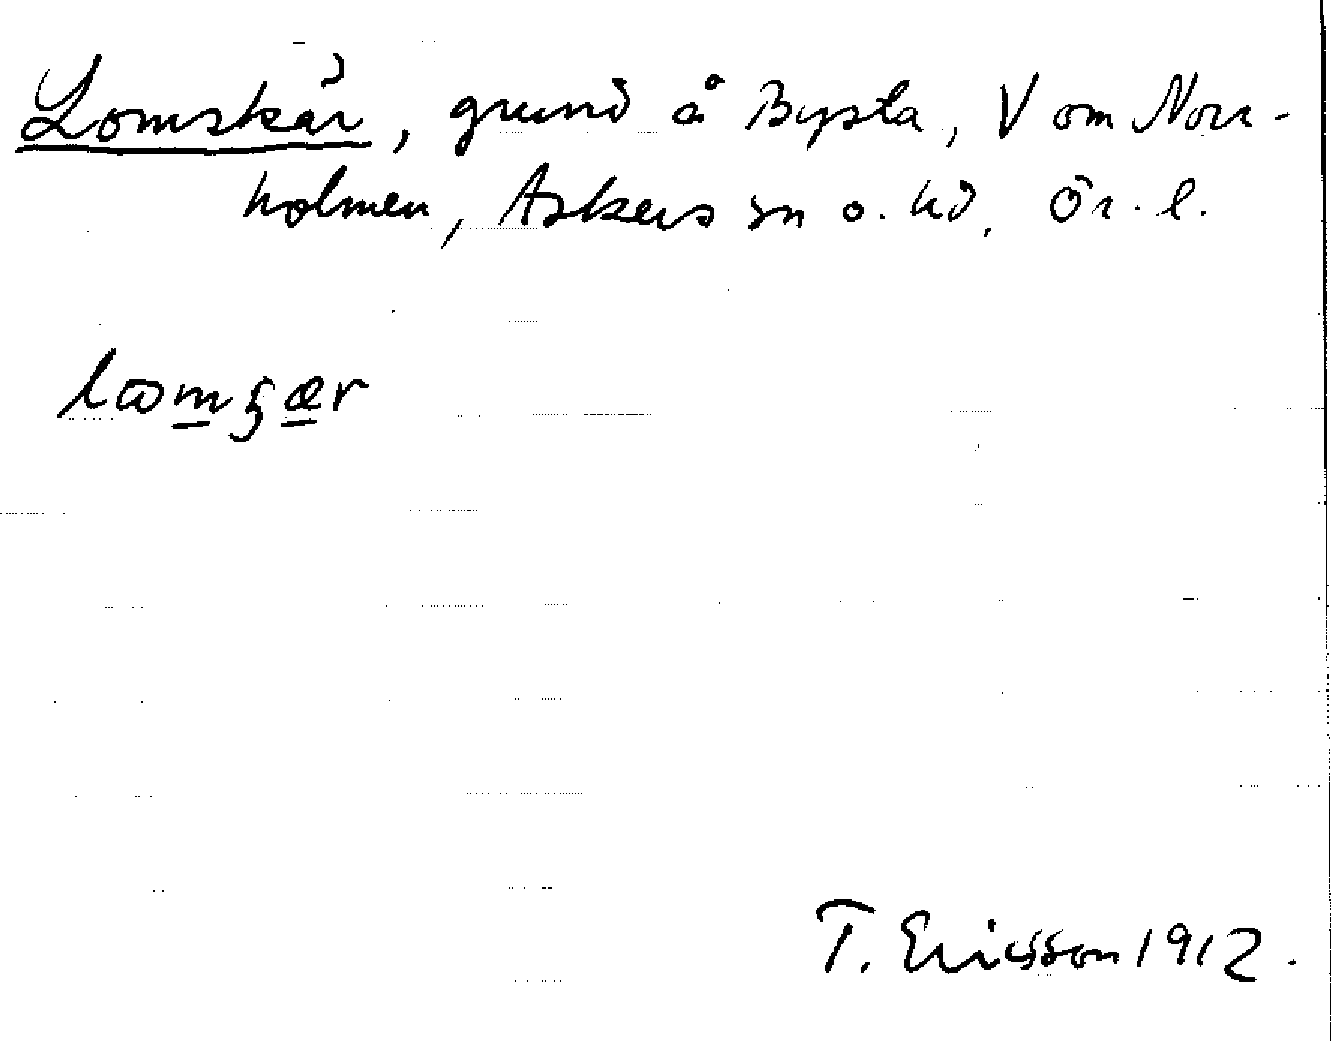 Lomskär, grund å Bysta, V om Norr-
holmen, Askers sn o. hd, Ör. l.
lɷmʂær
T. Ericsson 1912.